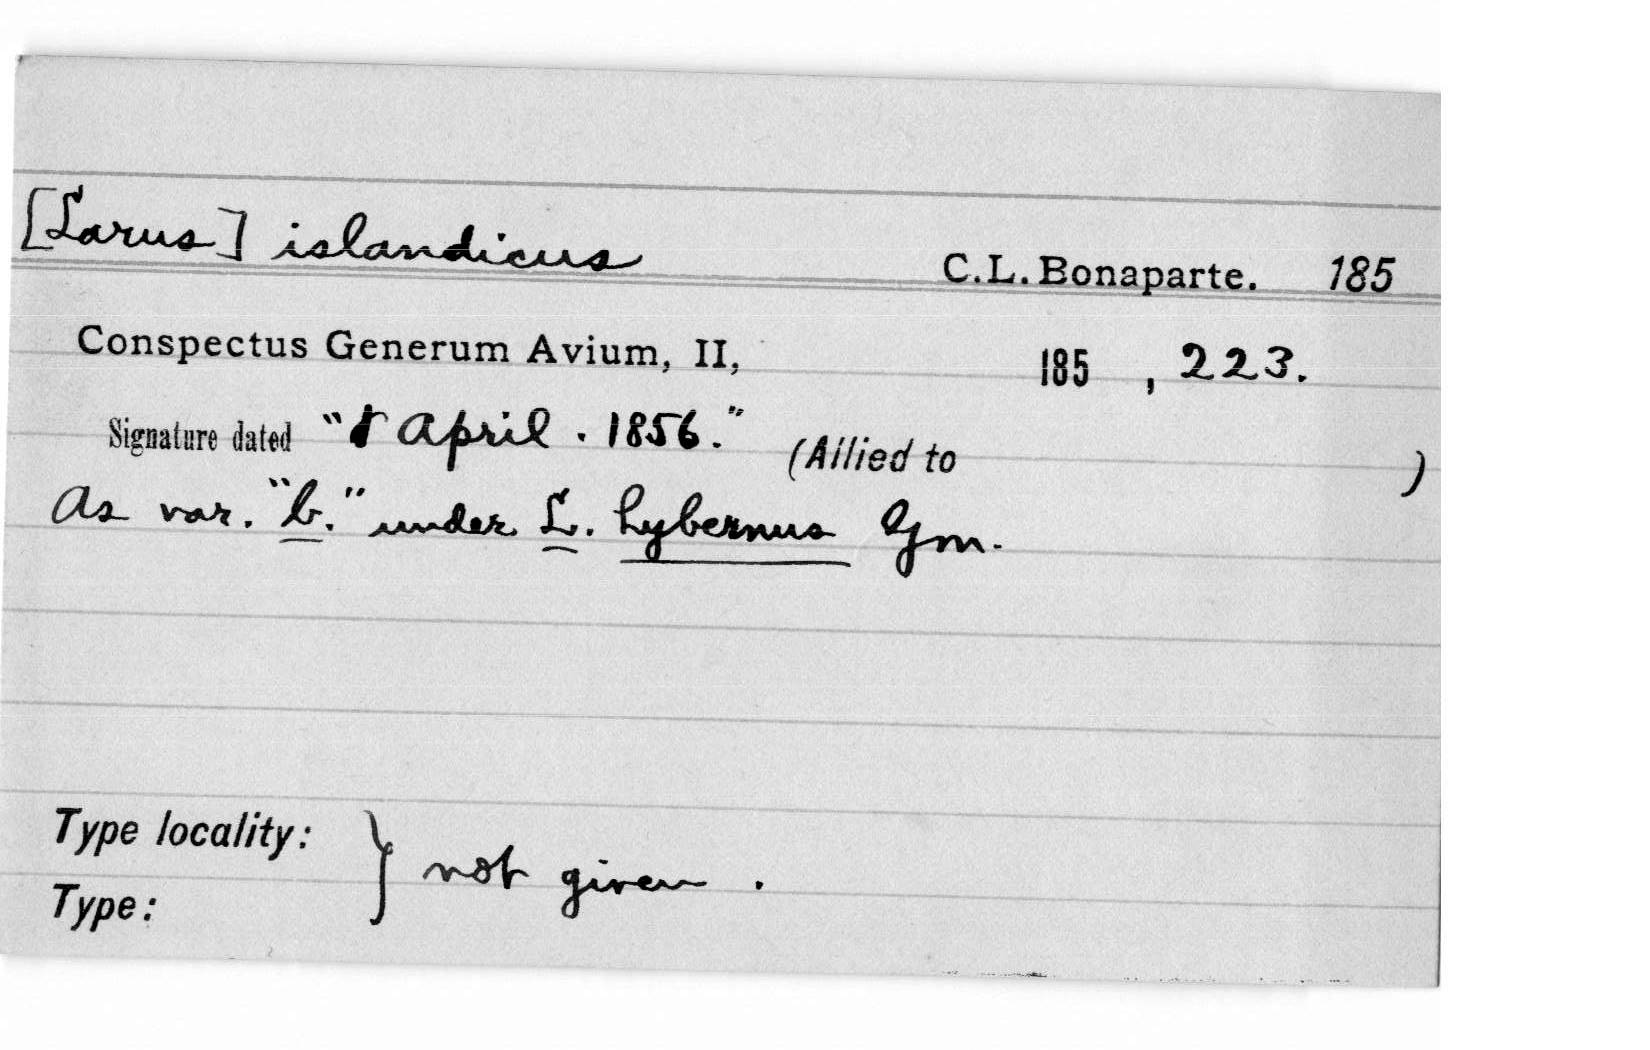 [Larus] islandicus C.L. Bonaparte. 185
Conspectus Generum Avium, II, 185 , 223.
Signature dated " April . 1856." (Allied to )
As var. "b." under L. hybernus Gm.
Type locality: } not given .
Type: